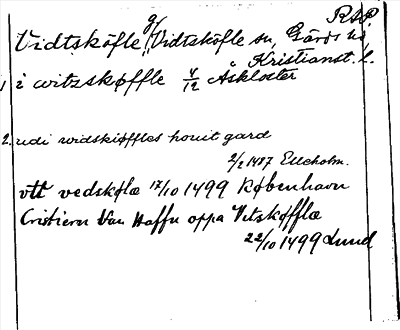 RAP.
Vidtsköfle g/ Vidtsköfle sn, Gärds hd
Kristianst. l.
1. i witzskøffle 4/12 Åskloster
2. udi widskiøffles houit gard
2/2 1487 Elleholm.
vtt vedskølæ 17/10 1499 København
Cristiern van Haffn oppa Vitskøfflæ
22/10 1499 Lund